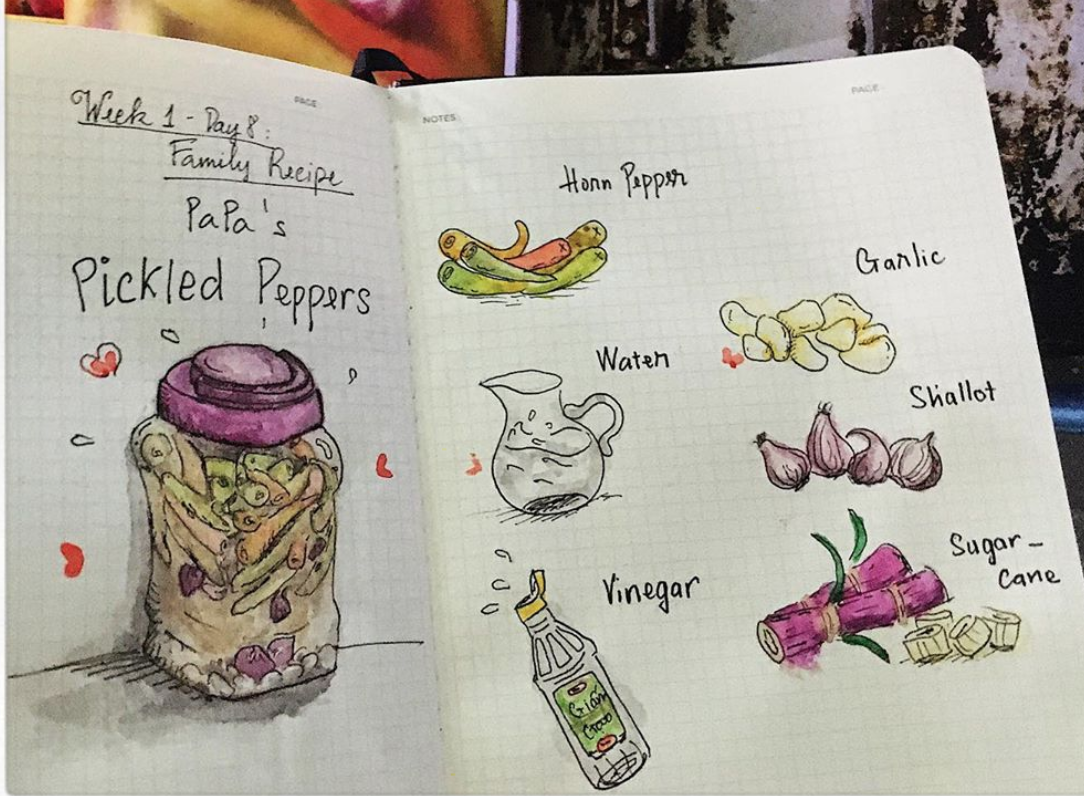 PAGE
Week 1 - Day 8:
Family Recipe
PaPa's
Pickled Peppers
PAGE
NOTES
Horn Pepper
Garlic
Water
Shallot
Sugar-
cane
Vinegar
Giấm
Gạo